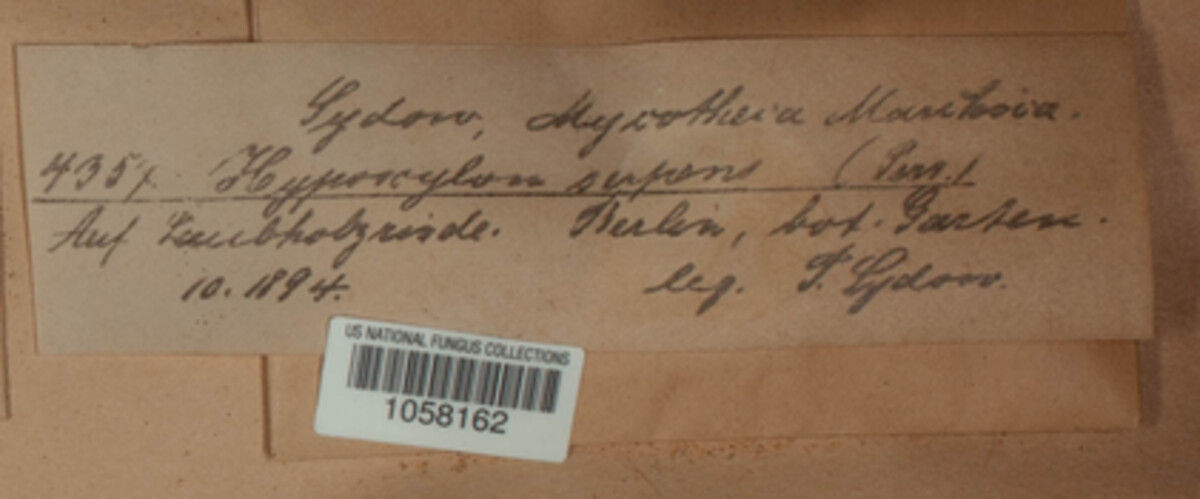 Sydow, Mycotheca Marchica.
4357. Hypoxylon serpens (Pers.)
Auf Laubholzrinde. Berlin, bot. Garten.
10. 1894. leg. P. Sydow.
US NATIONAL FUNGUS COLLECTIONS
1058162